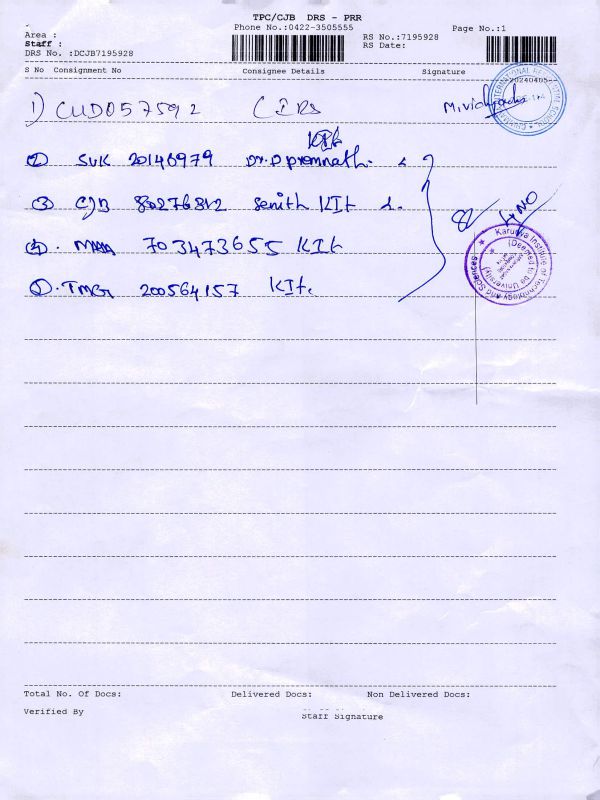 TPC/CJB DRS - PRR
Phone No.:0422-3505555 Page No.:1
Area : RS No.:7195928
Staff : RS Date:
DRS No. :DCJB7195928
S No Consignment No Consignee Details Signature
20240405
1) CUD057592 CIRS
KIt
2) SVK 20146979 Dr.D premnath.
3) CJB 80276812 Senith KIt
4). MAA 703473655 KIt
5). TMG 200564157 KIt.
Karunya Institute of Technology and Sciences
(Deemed to be University)
Total No. Of Docs: Delivered Docs: Non Delivered Docs:
Verified By
Staff Signature